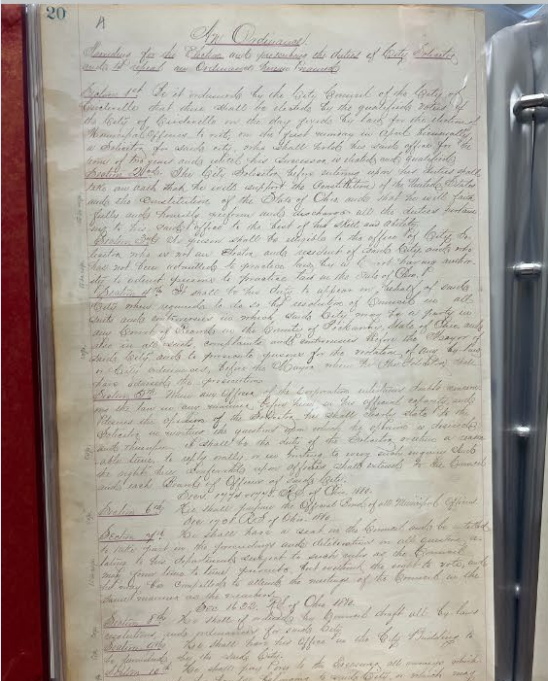 20
A
An Ordinance
Providing for the Election and prescribing the duties of City Solicitor
and to repeal an Ordinance herein named
Section 1st Be it ordained by the City Council of the City of
Circleville that there shall be elected by the qualified voters of
the City of Circleville on the day fixed by law for the election of
Municipal Officers to wit, on the first monday in April biennially
a Solicitor for said city, who shall hold his said office for the
term of two years and until his successor is elected and qualified
Section 2nd. The City Solicitor before entering upon his duties shall
take an oath that he will support the Constitution of the United States
and the Constitution of the State of Ohio and that he will faith
fully and honestly perform and discharge all the duties pertain
ing to his said office to the best of his skill and ability
Section 3rd No person shall be eligible to the office of City So
licitor who is not an Elector and resident of said City and who
has not been admitted to practice law by a Court having author
ity to admit persons to practice law in the State of Ohio.
Section 4th It shall be the duty to appear in behalf of said
City when required to do so by resolution of Council in all
suits and controversies in which said City may be a party in
any Court of Record in the County of Pickaway State of Ohio and
also in all suits, complaints and controversies before the Mayor of
said City and to prosecute persons for the violation of any by law
or City ordinances, before the Mayor when the shall
have advised the prosecution
Section 5th When any Officer of the Corporation entertains doubts concern
ing the law in any matter before him in his official capacity and
desires the opinion of the Solicitor he shall clearly state to the
Solicitor in writing the question upon which the opinion is desired
and thereupon it shall be the duty of the Solicitor within a reason
able time to reply orally or in writing to every such inquiry and
the right here conferred upon officers shall extend to the Council
and each Board of Officers of said City.
Secs 1777 & 1778 R.S. of Ohio 1880.
Section 6th. He shall prepare the Official Bonds of all Municipal Officers
Sec 1708 R.S. of Ohio 1880
Section 7th He shall have a seat in the Council and be entitled
to take part in the proceedings and deliberations on all questions re
lating to his department subject to such rules as the Council
may from time to time prescribe, but without the right to vote, and
he may be compelled to attend the meetings of the Council in the
same manner as the members.
Sec 1682. R.S. of Ohio 1880.
Section 8th He shall if ordered by Council draft all by laws
resolutions and ordinances for said City
Section 9th He shall have his Office in the City Building to
be furnished by the said City.
Section 10th He shall pay over to the Treasury all moneys which